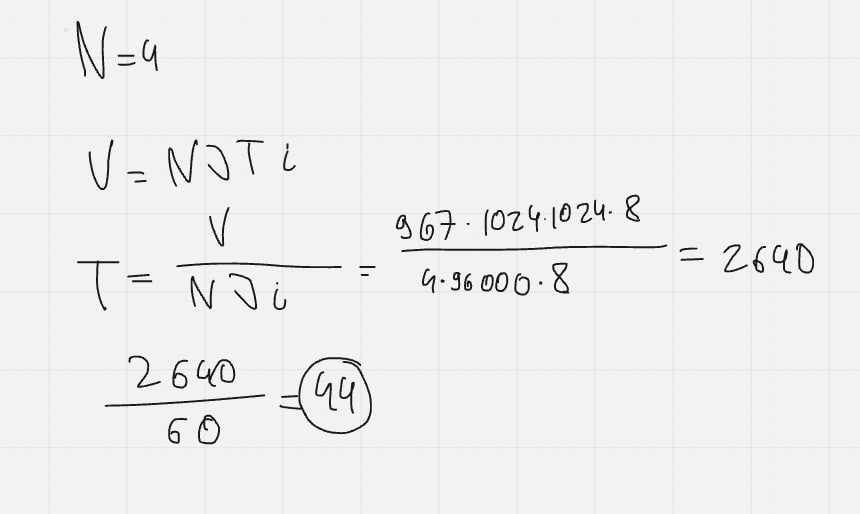 N=4
V=NJTi
T = V / NJi = 967·1024·1024·8 / 4·96000·8 = 2640
2640 / 60 = 44